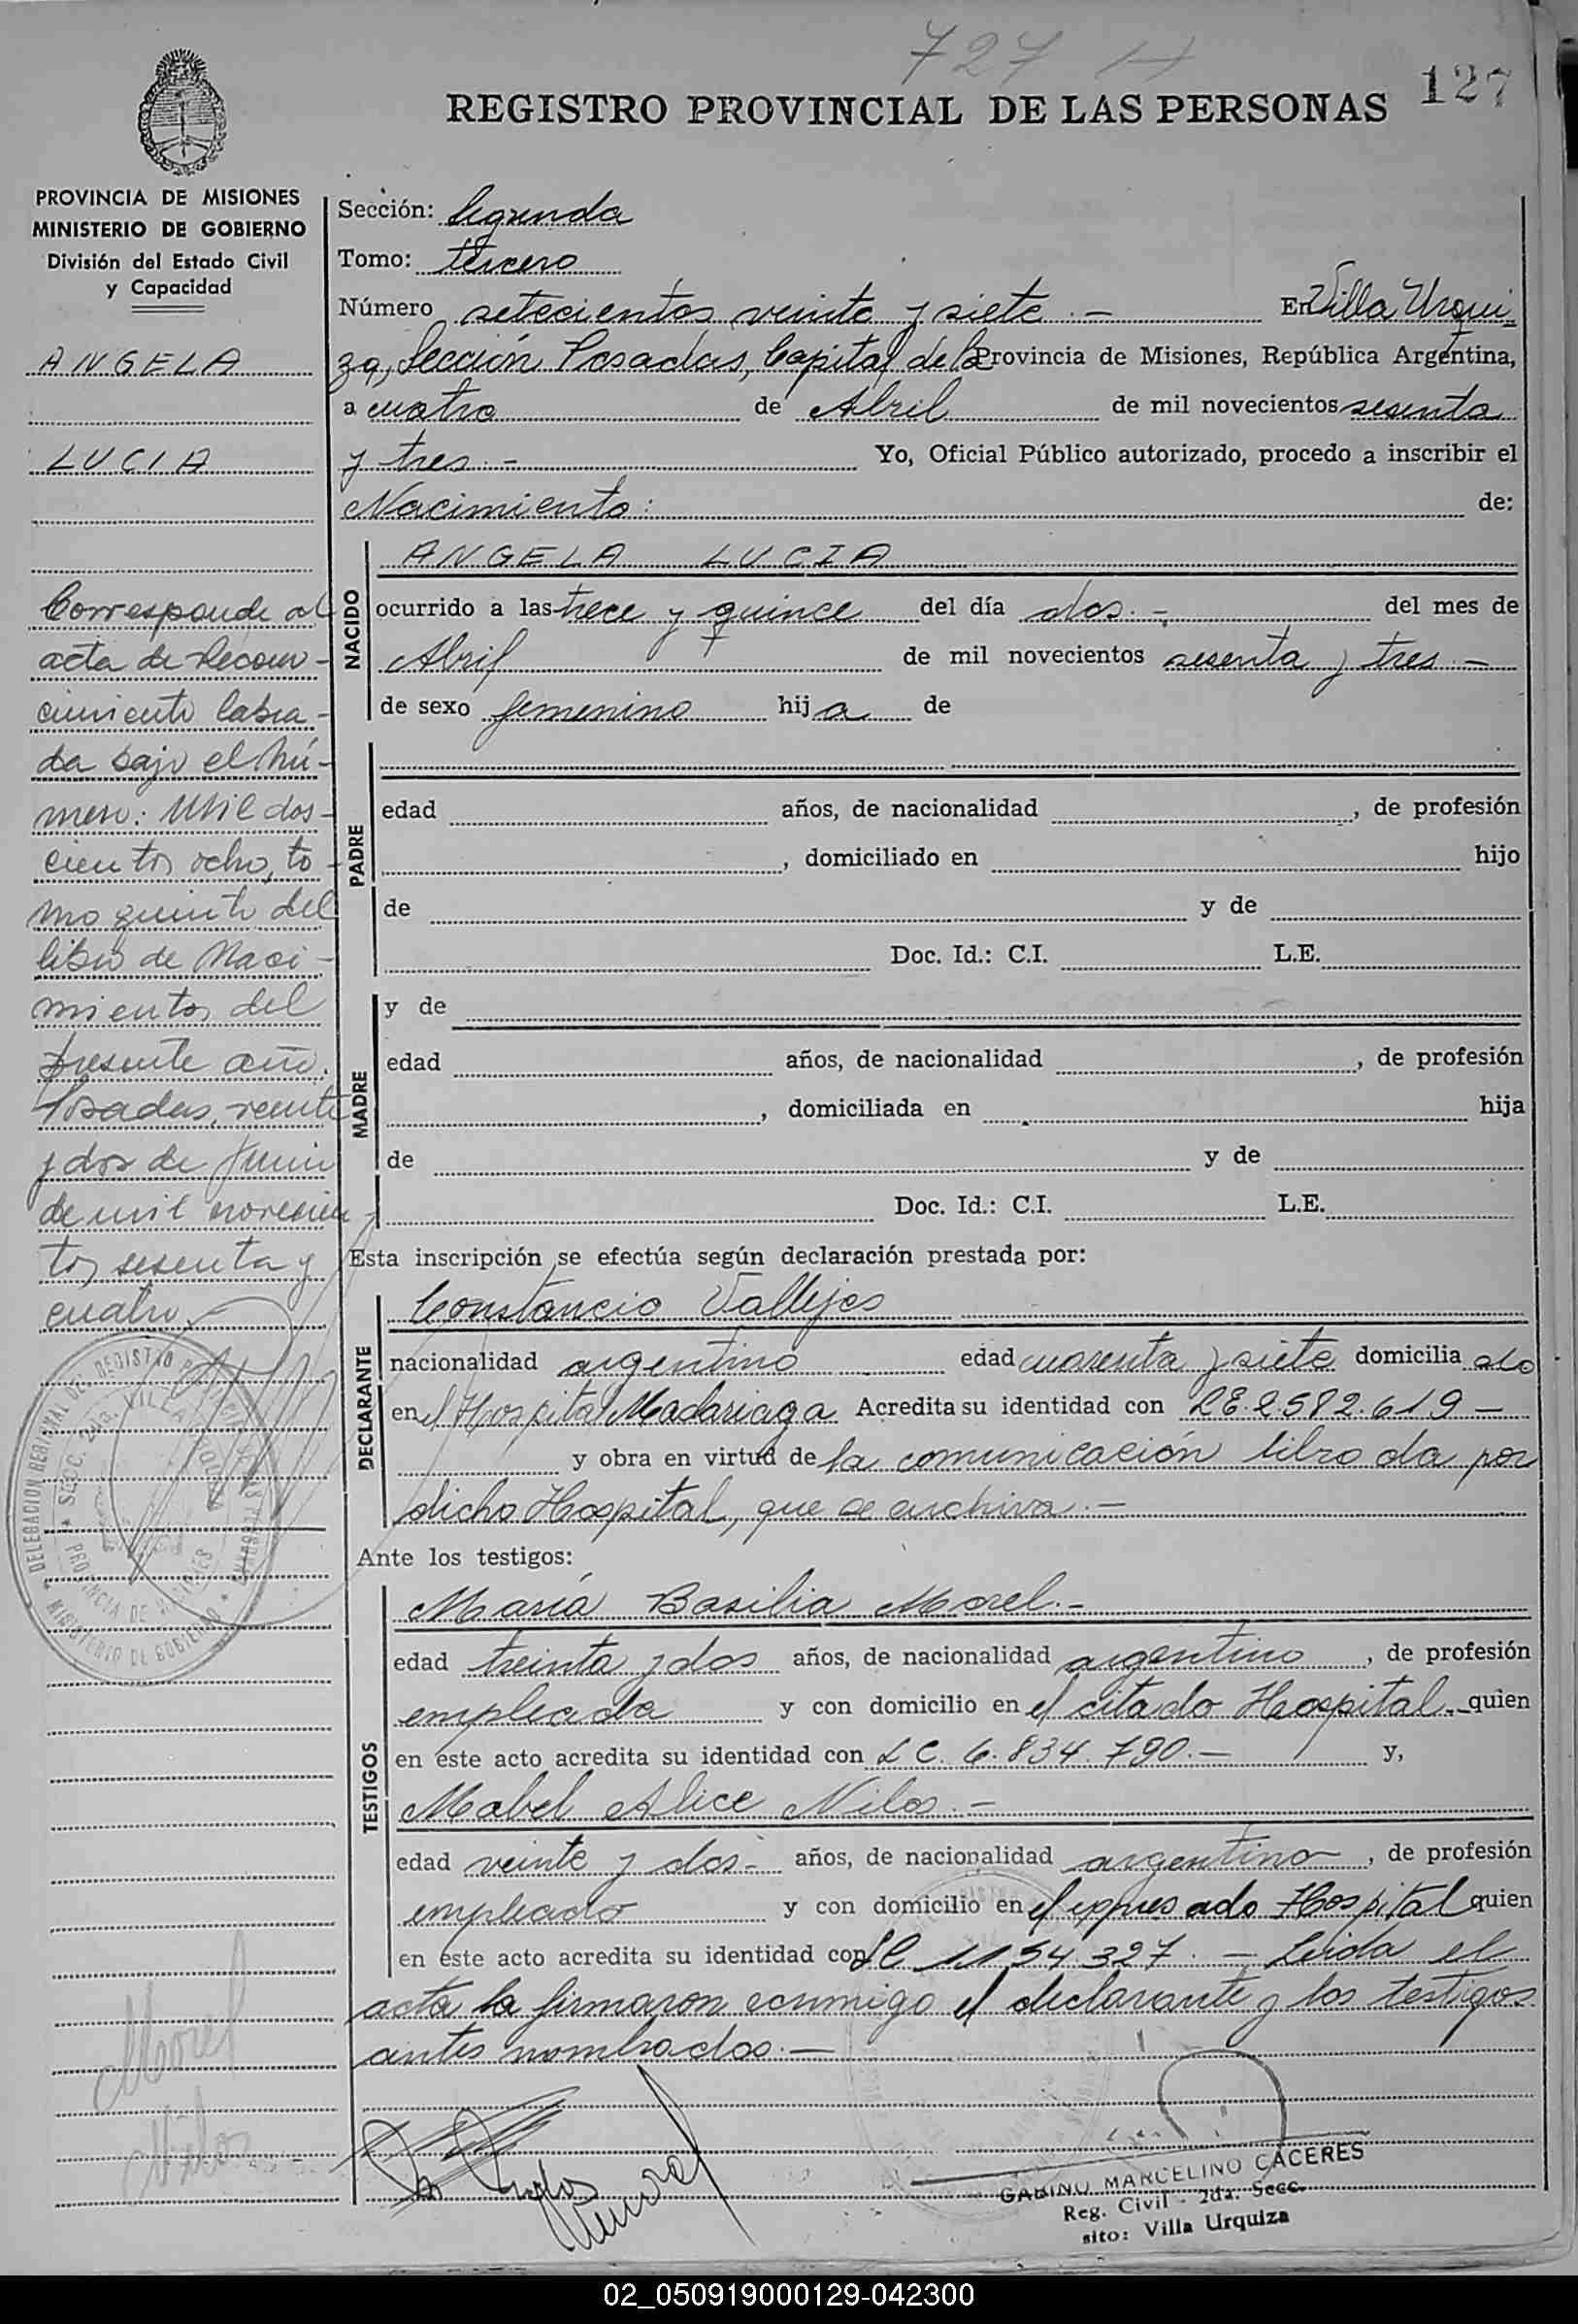 727 H
127
REGISTRO PROVINCIAL DE LAS PERSONAS
PROVINCIA DE MISIONES
MINISTERIO DE GOBIERNO
División del Estado Civil
y Capacidad
ANGELA
LUCIA
Corresponde al
acta de Recono-
cimiento labra-
da bajo el nú-
mero: Mil dos-
cientos ocho, to-
mo quinto del
libro de Naci-
mientos del
presente año.
Posadas, veinte
y dos de Junio
de mil novecien-
tos sesenta y
cuatro.
DELEGACION REGIONAL DEL REGISTRO PROVINCIAL DE LAS PERSONAS
SECC. 2da. VILLA URQUIZA
PROVINCIA DE MISIONES
MINISTERIO DE GOBIERNO
Morel
Nilos
Sección: Segunda
Tomo: tercero
Número setecientos veinte y siete.- En Villa Urqui-
za, Sección Posadas, Capital de la Provincia de Misiones, República Argentina,
a cuatro de Abril de mil novecientos sesenta
y tres.- Yo, Oficial Público autorizado, procedo a inscribir el
Nacimiento: de:
NACIDO
ANGELA LUCIA
ocurrido a las trece y quince del día dos.- del mes de
Abril de mil novecientos sesenta y tres.-
de sexo femenino hija de
PADRE
edad años, de nacionalidad , de profesión
, domiciliado en hijo
de y de
Doc. Id.: C.I. L.E.
MADRE
y de
edad años, de nacionalidad , de profesión
, domiciliada en hija
de y de
Doc. Id.: C.I. L.E.
Esta inscripción se efectúa según declaración prestada por:
DECLARANTE
Constancio Vallejos
nacionalidad argentino edad cuarenta y siete domicilia do
en el Hospital Madariaga Acredita su identidad con LE.2582.619-
y obra en virtud de la comunicación librada por
dicho Hospital, que se archiva.-
Ante los testigos:
TESTIGOS
María Basilia Morel.-
edad treinta y dos años, de nacionalidad argentino , de profesión
empleada y con domicilio en el citado Hospital.- quien
en este acto acredita su identidad con LC. 6.834.790.- y,
Mabel Alice Nilos.-
edad veinte y dos- años, de nacionalidad argentino , de profesión
empleado y con domicilio en el expresado Hospital quien
en este acto acredita su identidad con LC 1154.327.- Leida el
acta la firmaron conmigo el declarante y los testigos
antes nombrados.-
GABINO MARCELINO CACERES
Reg. Civil - 2da. Secc.
sito: Villa Urquiza
02_050919000129-042300